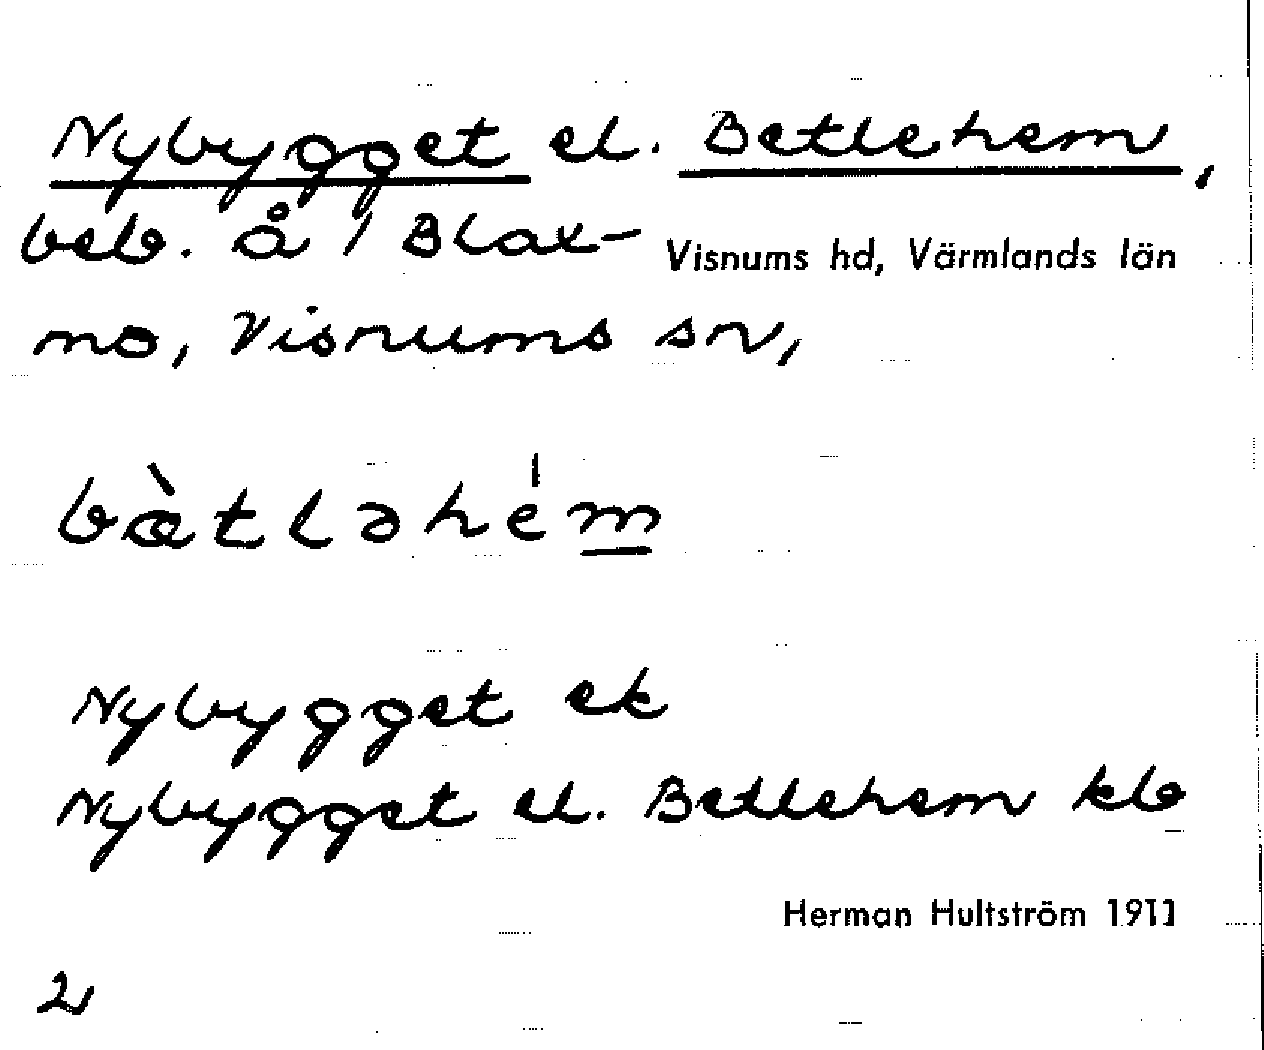 Nybygget el. Betlehem,
beb. å 1 Blax-
mo, Visnums sn,
Visnums hd, Värmlands län
bæ̀tləhém
Nybygget ek
Nybygget el. Betlehem kb
Herman Hultström 1911
2